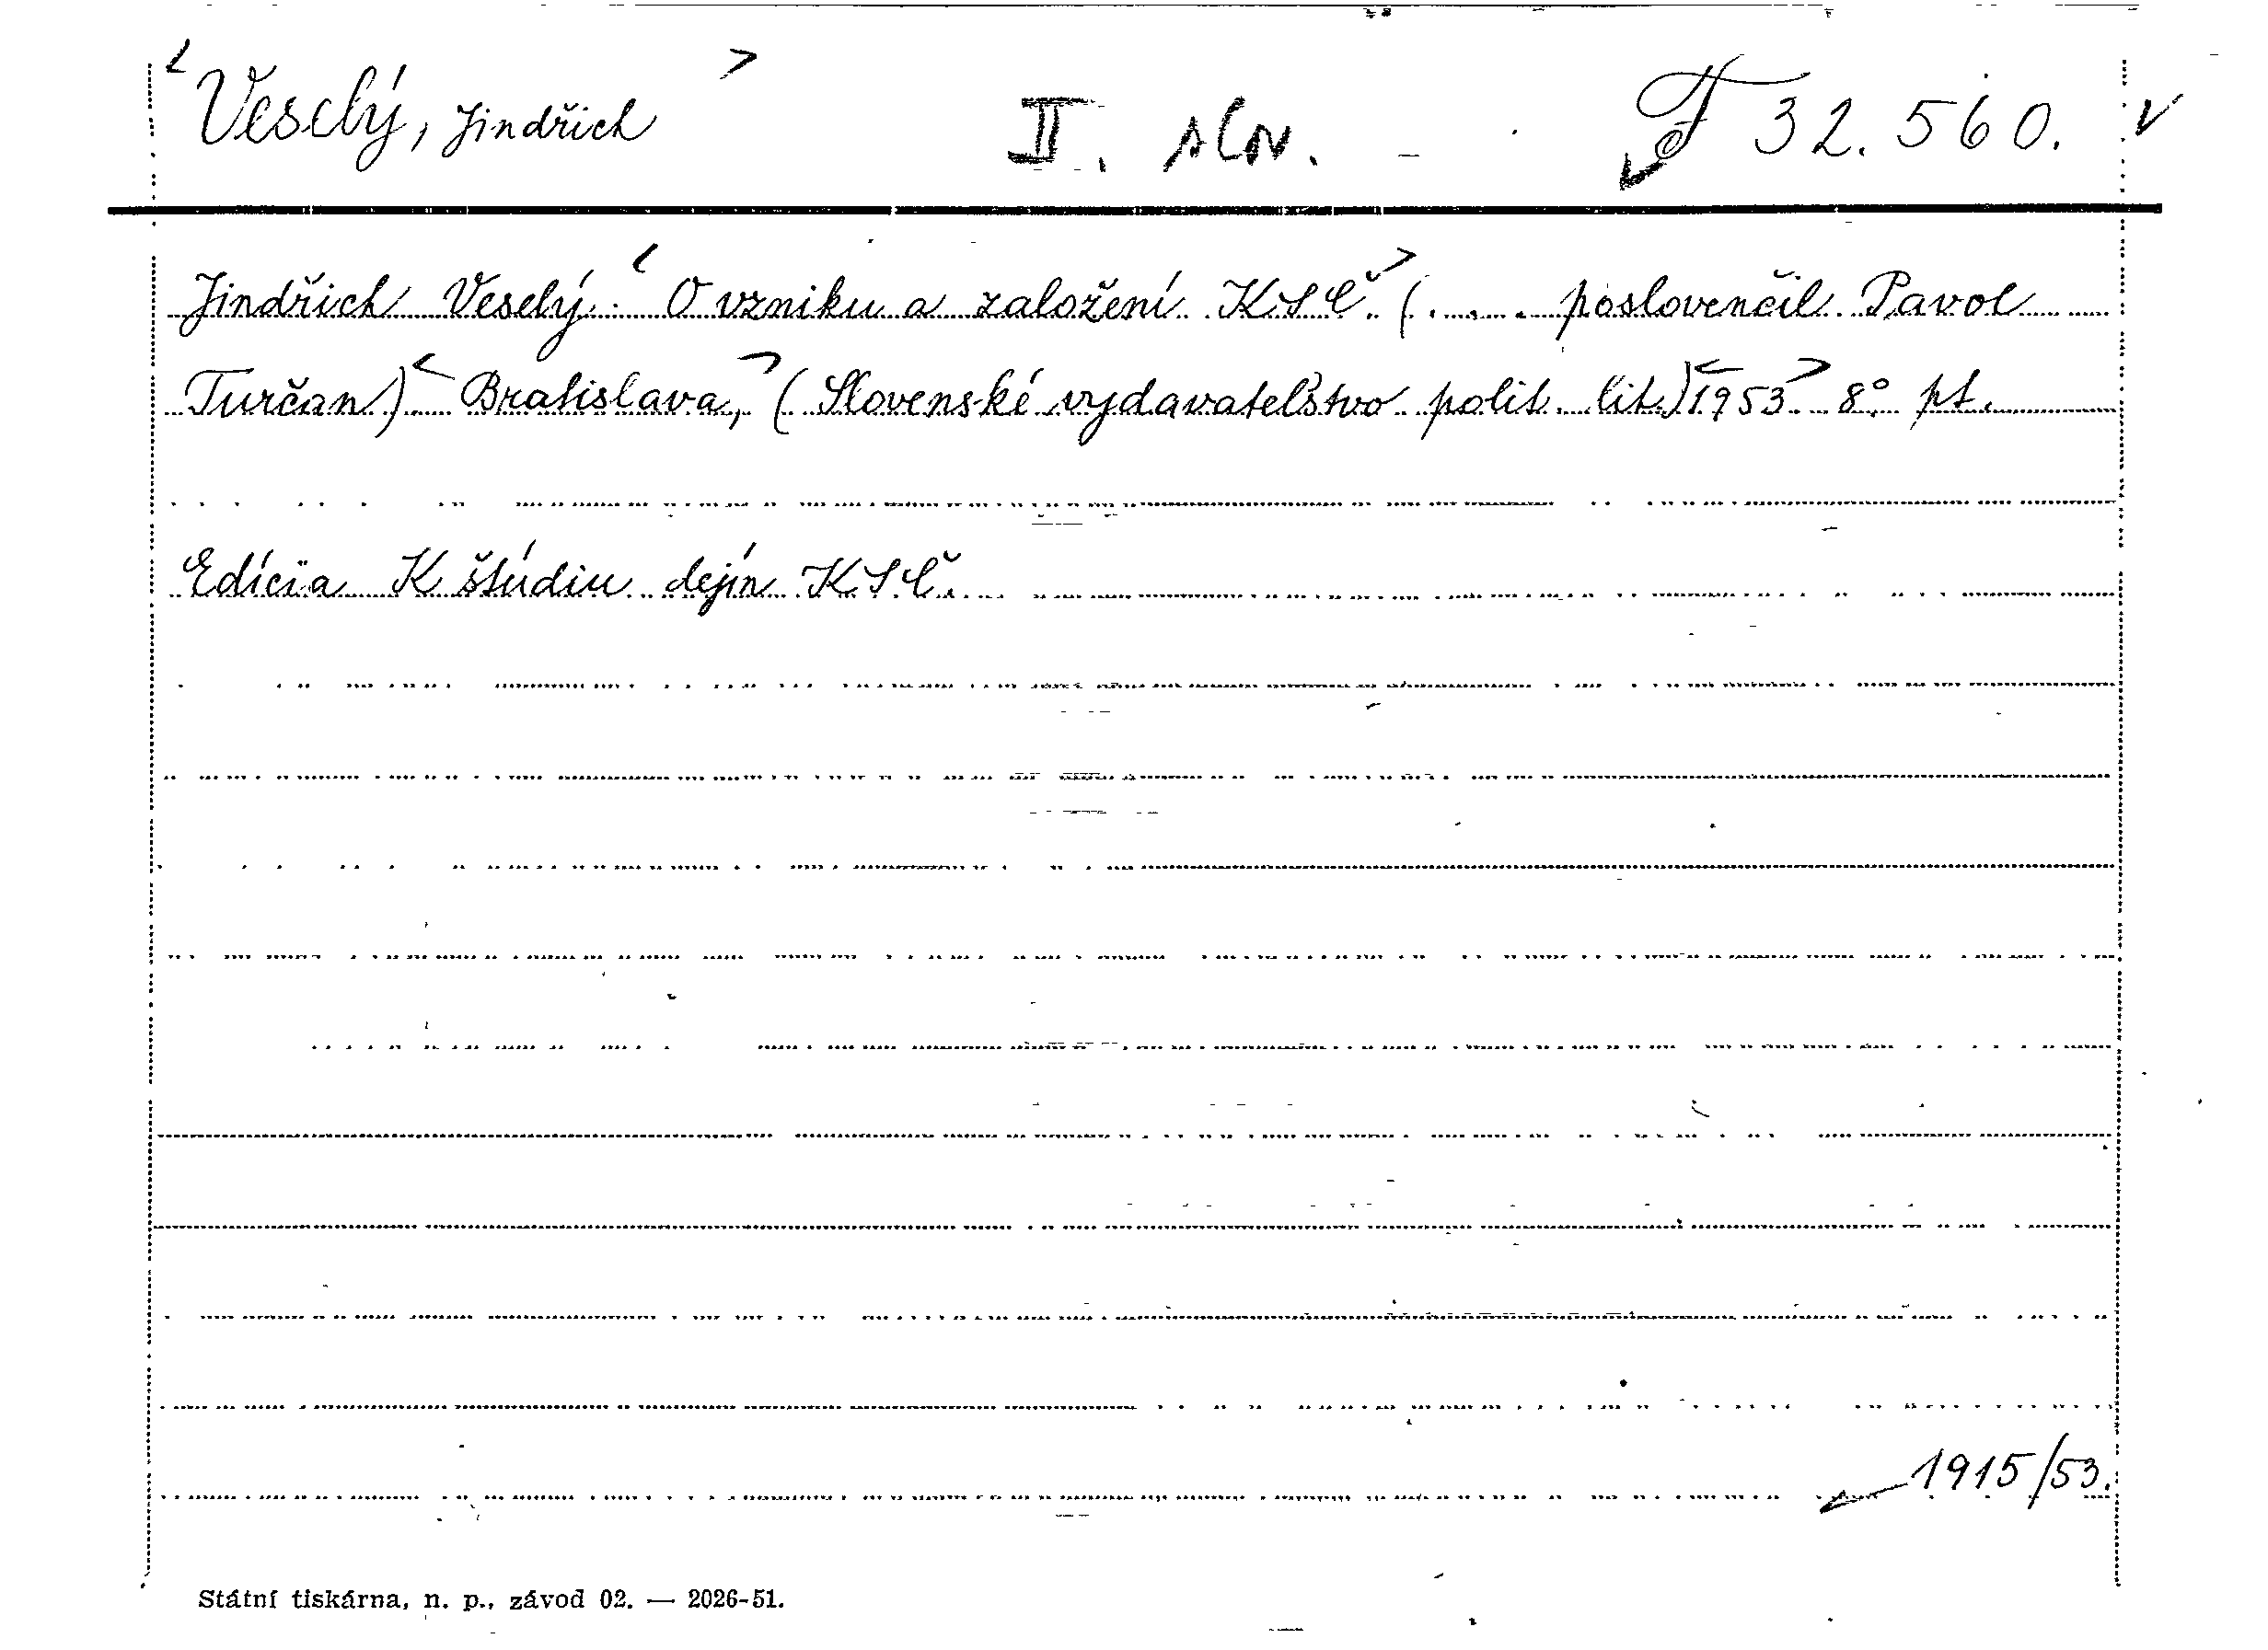 <Veselý, Jindřich> II. slov. F 32.560.
Jindřich Veselý: <O vzniku a založení KSČ> (. . . . poslovenčil Pavol
Turčan) <Bratislava,> (Slovenské vydavateľstvo polit. lit.) <1953> 8° pt.
Edícia K štúdiu dejín KSČ.
1915/53.
Státní tiskárna, n. p., závod 02. — 2026-51.